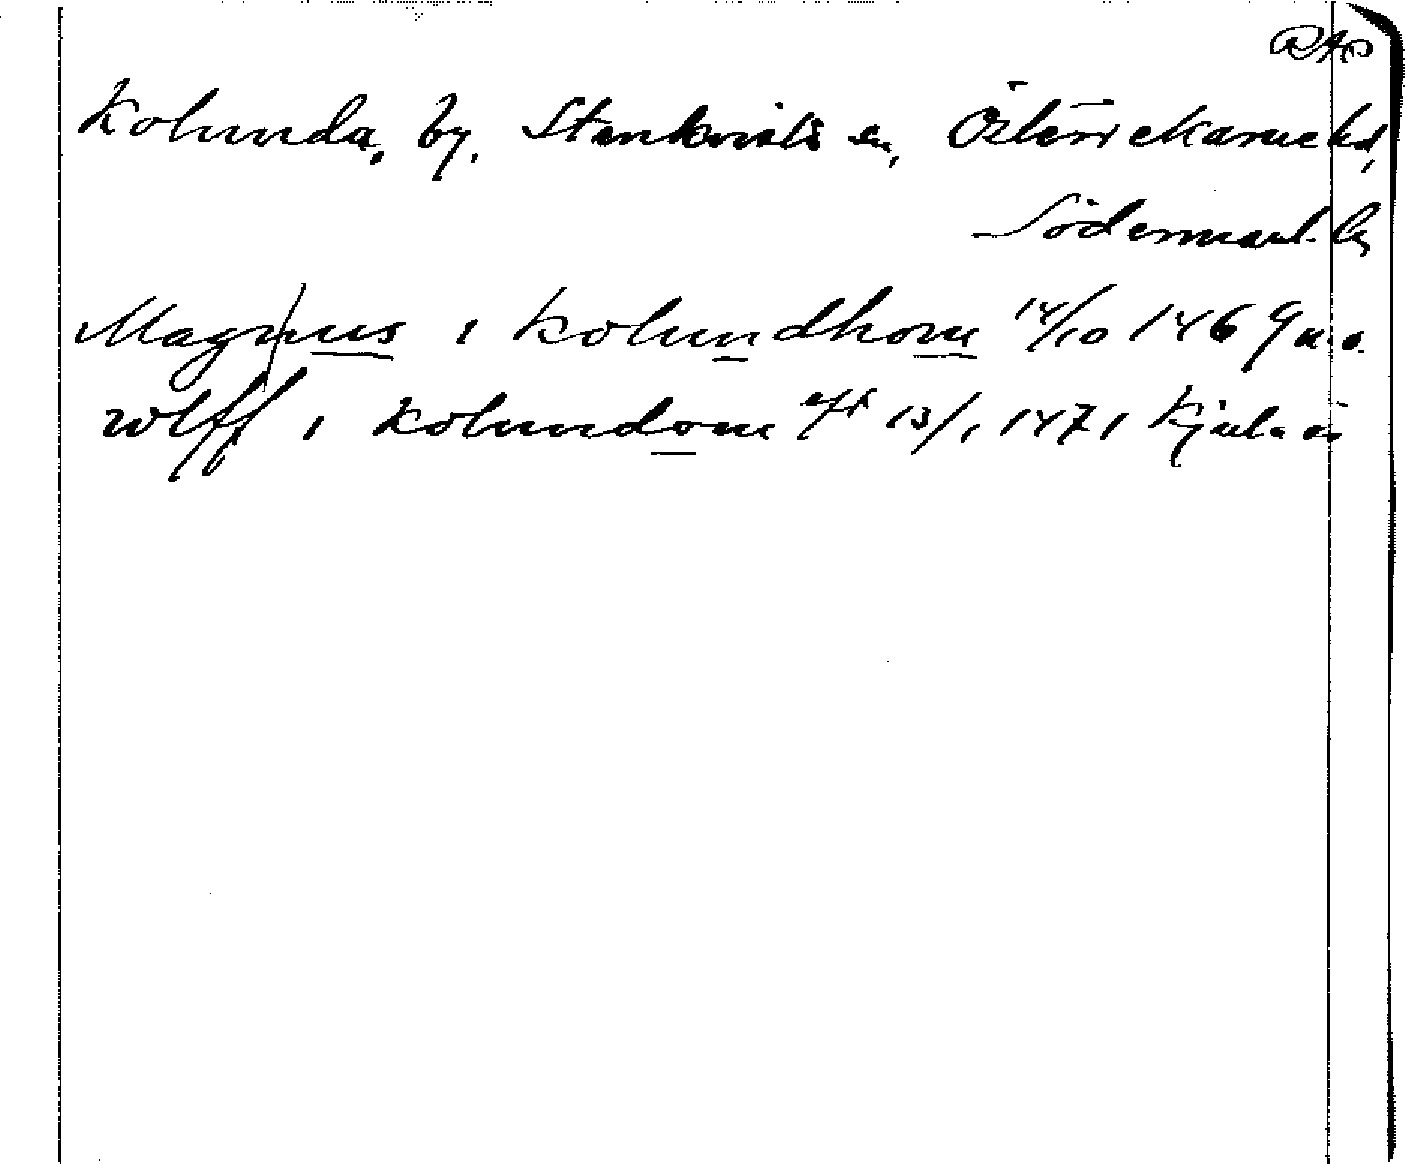 RAP
Kolunda, by, Stenkvista sn, Österrekarne hd,
Södermanl. lg
Magnus i Kolundhom 14/10 1469 u.o.
wlff i Kolundom aft 13/1 1471 Kjula ög